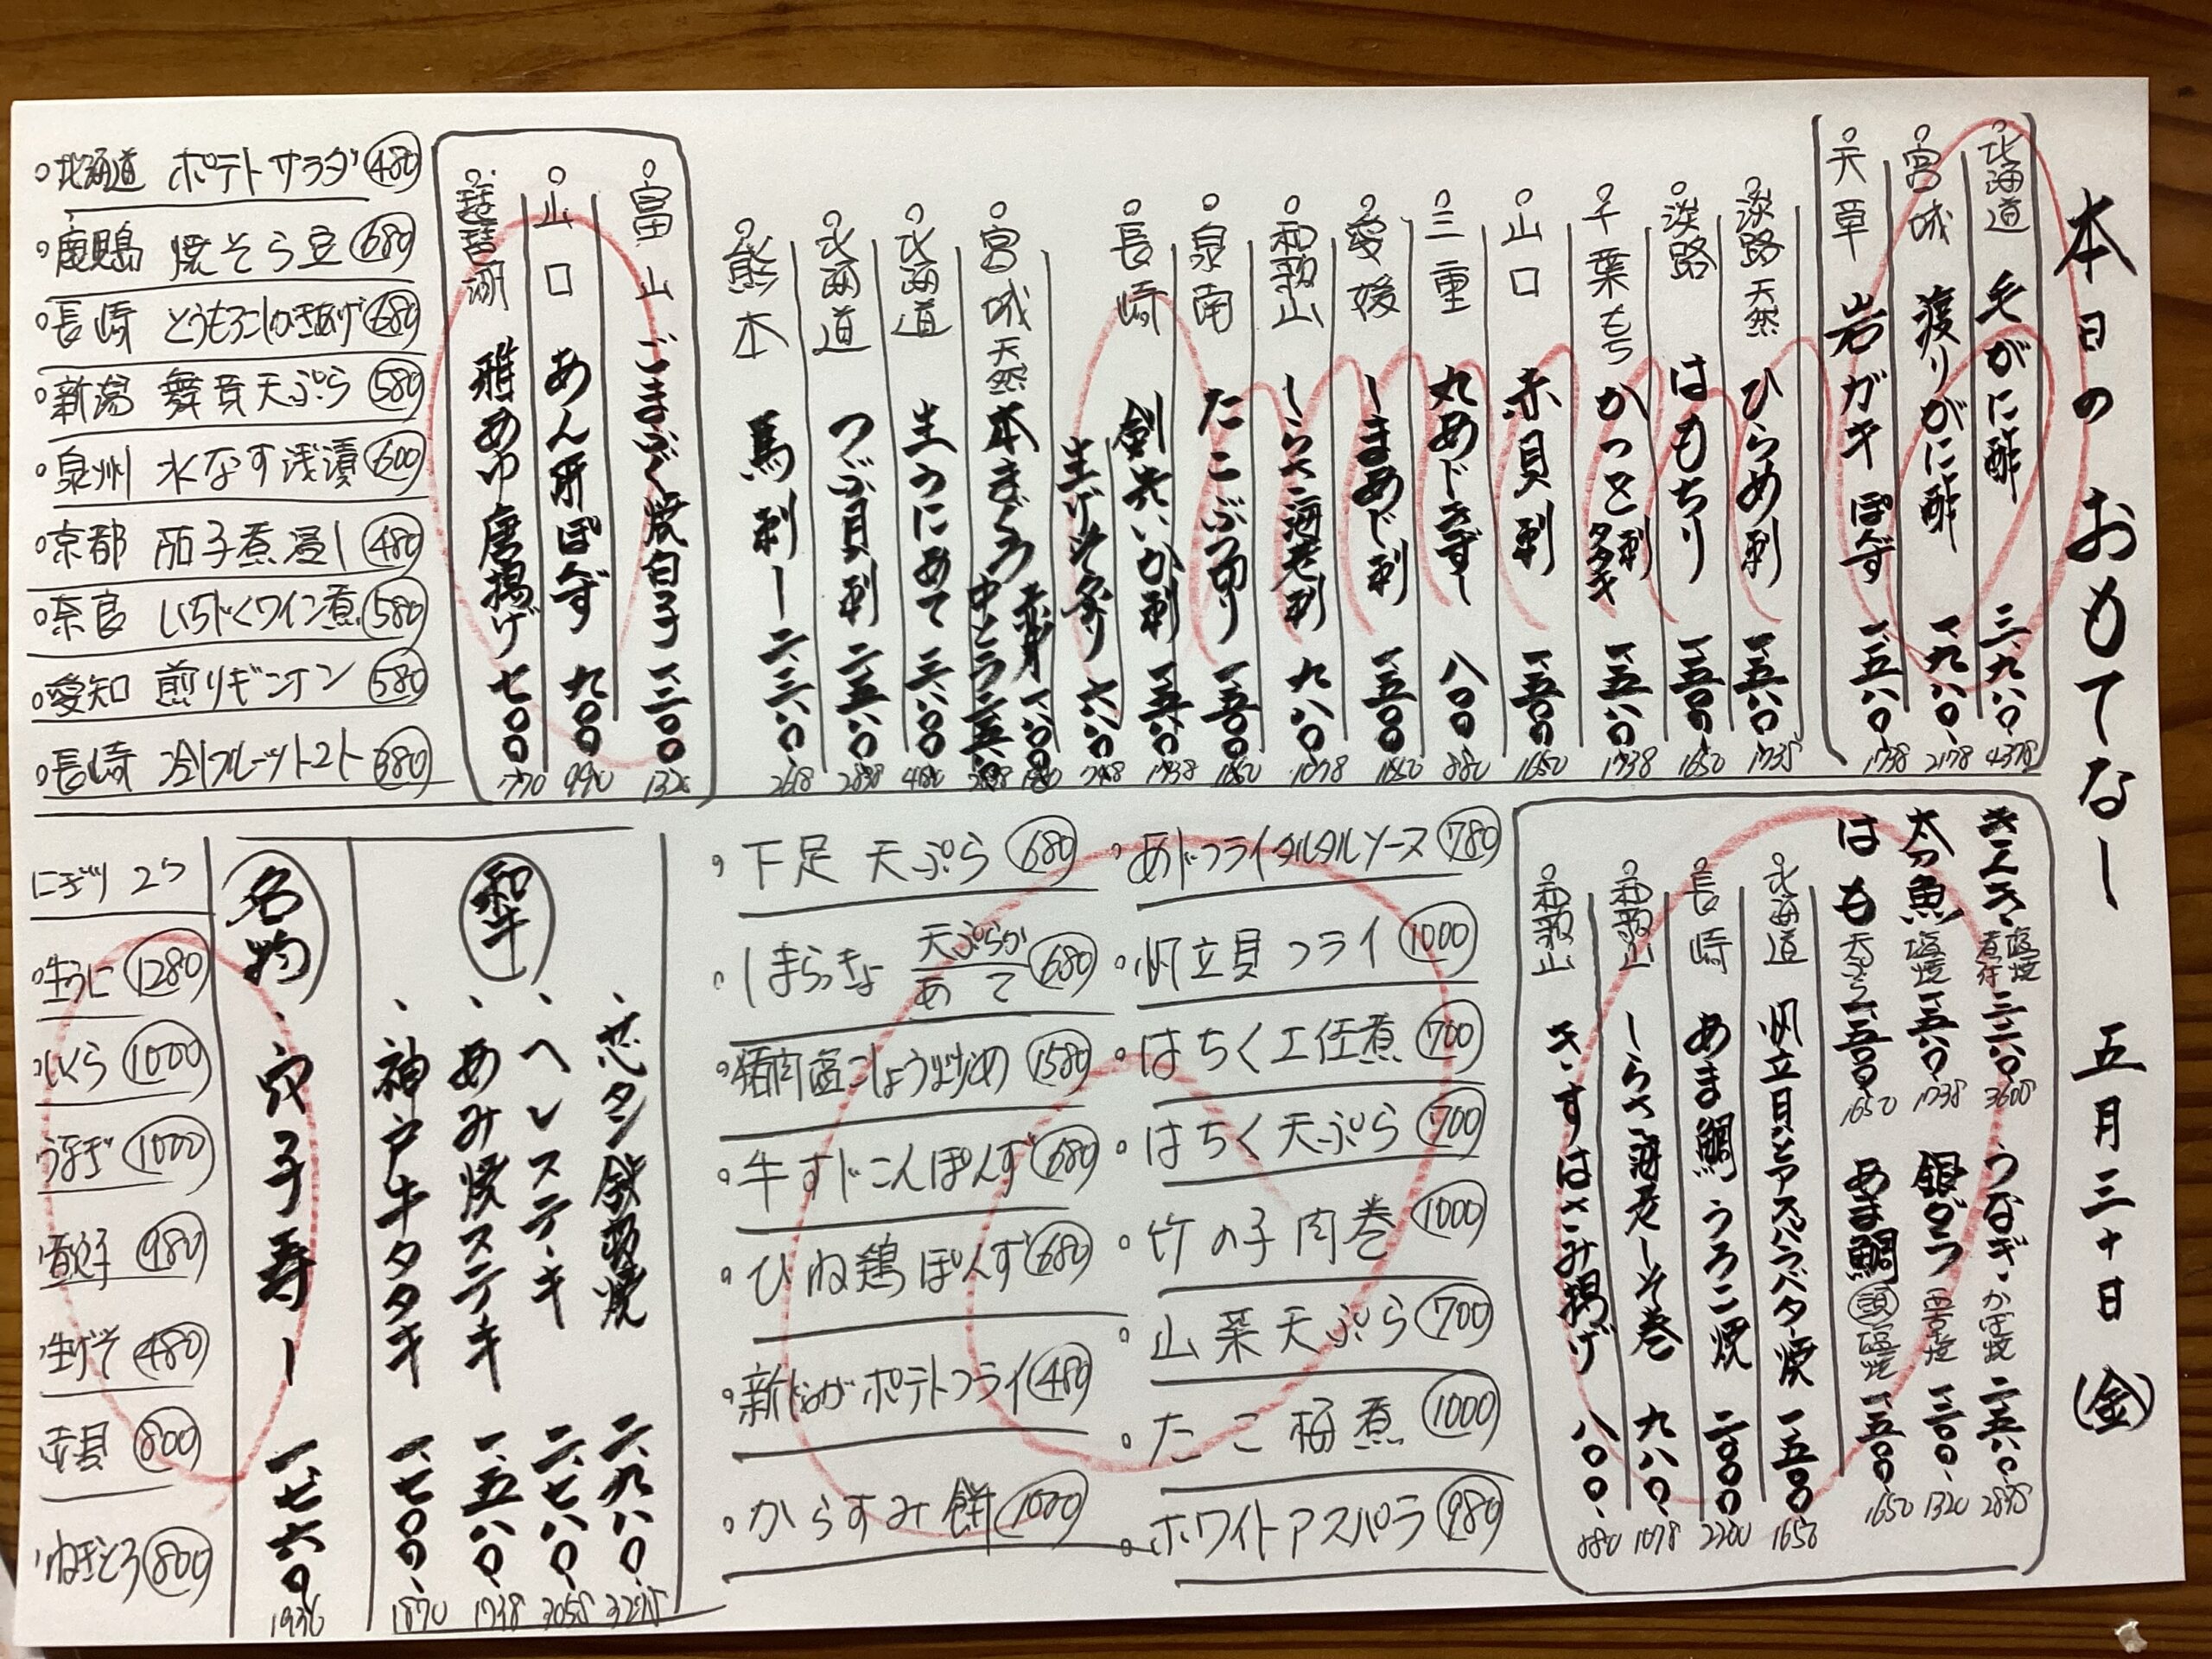 本日のおもてなし 五月三十日(金)
北海道 毛がに酢 三、九八〇、 4378
宮城 渡りがに酢 一、九八〇、 2178
天草 岩ガキぽんず 一、五八〇、 1738
淡路 天然 ひらめ刺 一、五八〇、 1738
淡路 はもちり 一、五〇〇、 1650
千葉 もち かつを 刺 タタキ 一、五八〇、 1738
山口 赤貝刺 一、五〇〇、 1650
三重 丸あじきずし 八〇〇 880
愛媛 しまあじ刺 一、五〇〇 1650
和歌山 しらさ海老刺 九八〇 1078
泉南 たこぶつ切り 一、五〇〇 1650
長崎 剣先いか刺 一、五八〇 1738
生げそ炙り 六八〇
宮城 天然 本まぐろ 赤身 一、八〇〇 1980
中とろ 二、五八〇
北海道 生うにあて
北海道 つぶ貝刺 二、五八〇
熊本 馬刺し 二、三八〇、 2618
富山 ごまふぐ焼白子 一、二〇〇 1320
山口 あん肝ぽんず 九〇〇 990
琵琶湖 稚あゆ唐揚げ 七〇〇 770
北海道 ポテトサラダ 480
鹿児島 焼そら豆 680
長崎 とうもろこしかきあげ 680
新潟 舞茸天ぷら 580
泉州 水なす浅漬 600
京都 茄子煮浸し 480
奈良 いちじくワイン煮 580
愛知 煎りギンナン 580
長崎 冷しフルーツトマト 380
きんき 塩焼 煮付 三、二八〇、 3608
太刀魚 塩焼 一、五八〇、 1738
はも 天ぷら 一、五〇〇 1650
うなぎ かば焼 二、五八〇、
銀ダラ 西京焼 一、二〇〇、 1320
あま鯛 頭 塩焼 一、五〇〇、 1650
北海道 帆立貝とアスパラバター焼 一、五〇〇、 1650
長崎 あま鯛うろこ焼 二、〇〇〇 2200
和歌山 しらさ海老しそ巻 九八〇、 1078
和歌山 きすはさみ揚げ 八〇〇、 880
あじフライタルタルソース 780
帆立貝フライ 1000
はちく土佐煮 700
はちく天ぷら 700
竹の子肉巻 1000
山菜天ぷら 700
たこ梅煮 1000
ホワイトアスパラ 980
下足天ぷら 680
しまらっきょ 天ぷらか あて 680
猪肉塩こしょう炒め 1580
牛すじこんぽんず 680
ひね鶏ぽんず 680
新じゃがポテトフライ 480
からすみ餅 1000
和牛
芯タン鉄板焼 二、九八〇、
ヘレステーキ 二、七八〇、 3058
あみ焼ステーキ 一、五八〇、 1738
神戸牛タタキ 一、七〇〇、 1870
名物 穴子寿し 一、七六〇 1936
にぎり 2つ
生うに 1280
いくら 1000
うなぎ 1000
980
生げそ 480
赤貝 800
ねぎとろ 800